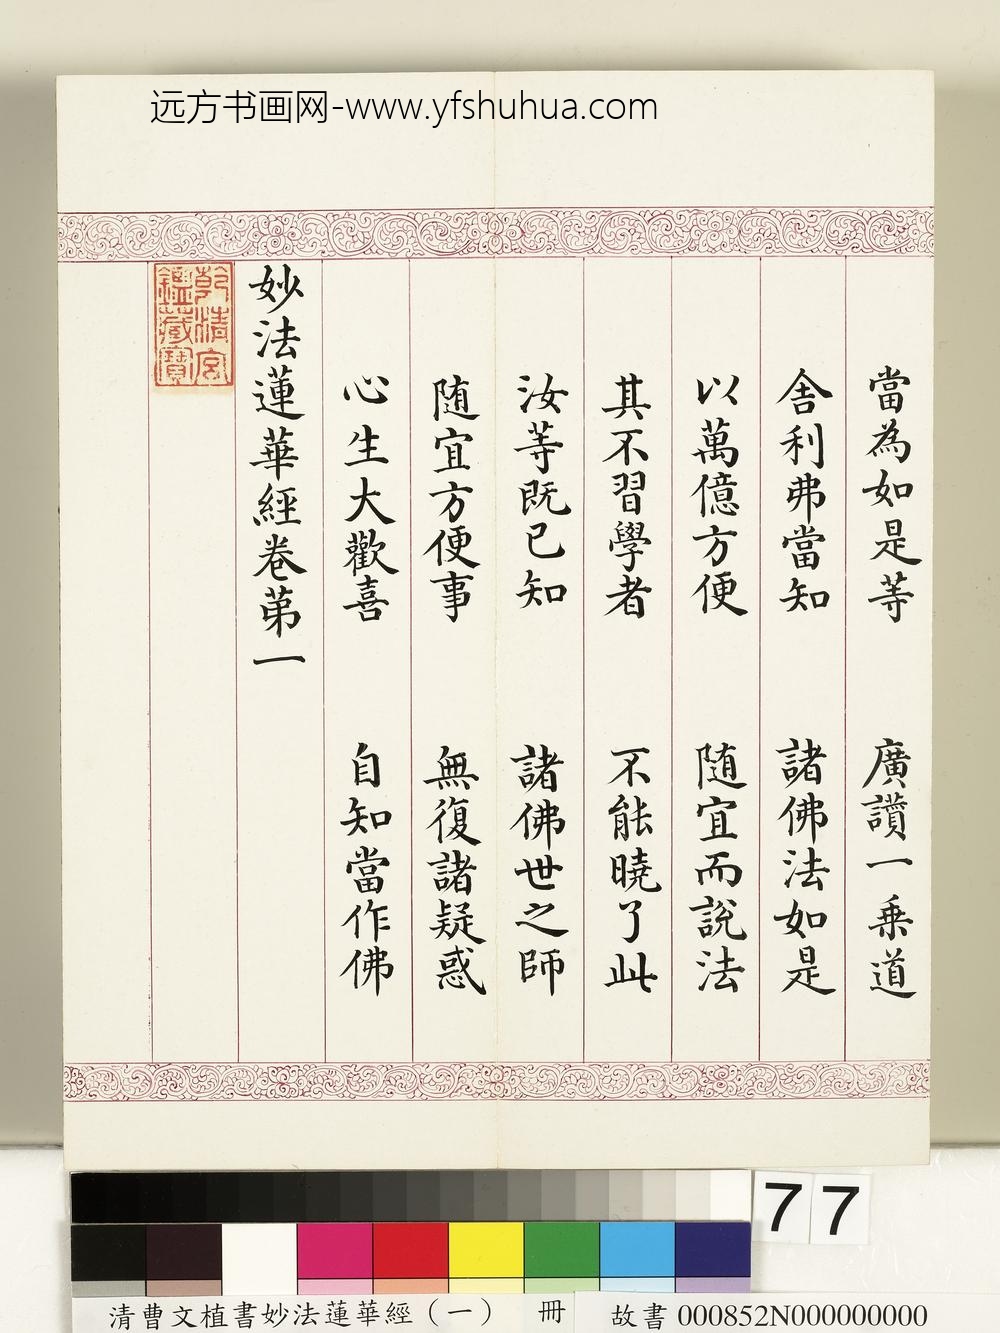 远方书画网-www.yfshuhua.com
當為如是等　廣讚一乗道
舎利弗當知　諸佛法如是
以萬億方便　随宜而說法
其不習學者　不能曉了此
汝等既已知　諸佛世之師
随宜方便事　無復諸疑惑
心生大歡喜　自知當作佛
妙法蓮華經卷苐一
乾清宮
鑑藏寶
77
清曹文植書妙法蓮華經（一）　冊　故書 000852N000000000